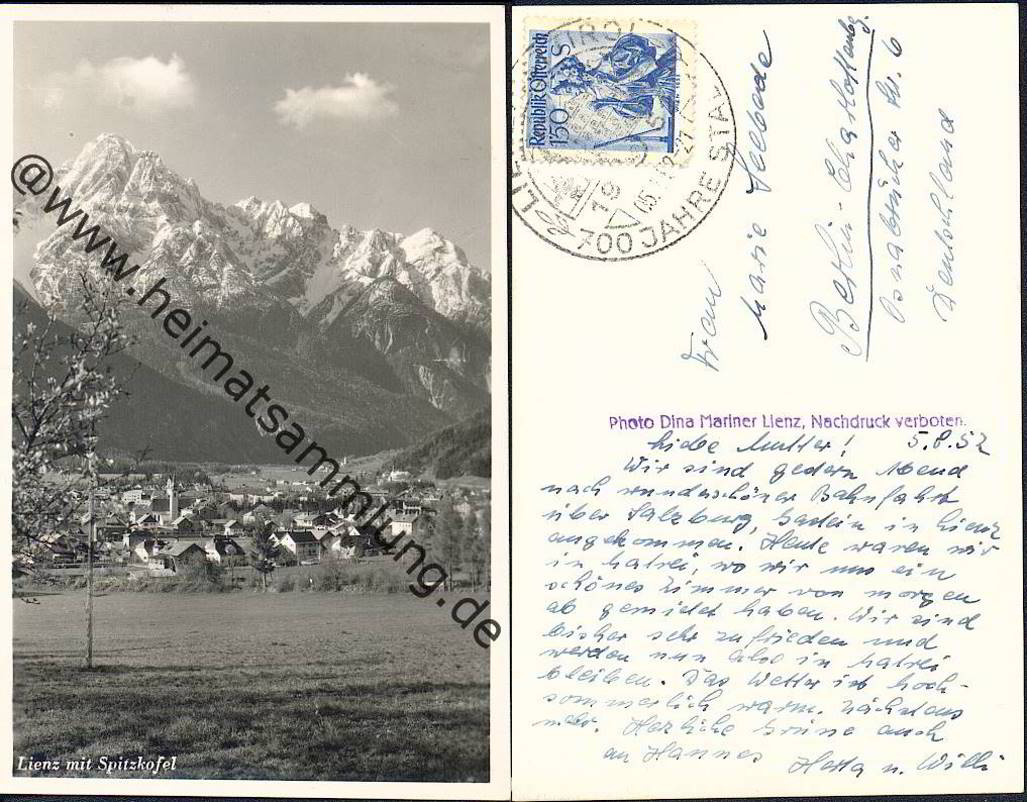 @www.heimatsammlung.de
Lienz mit Spitzkofel
Republik Österreich
1'50 S
700 JAHRE STA
Frau
Marie Selbode
Berlin-Charlottenbg.
Osnabrücker Str. 6
Deutschland
Photo Dina Mariner Lienz, Nachdruck verboten.
Liebe Mutter! 5.8.52
Wir sind gestern Abend
nach wunderschöner Bahnfahrt
über Salzburg, Gastein in Lienz
angekommen. Heute waren wir
in Matrei, wo wir uns ein
schönes Zimmer von morgen
ab gemietet haben. Wir sind
bisher sehr zufrieden und
werden nun also in Matrei
bleiben. Das Wetter ist hoch-
sommerlich warm. Nächstens
mehr. Herzliche Grüße auch
an Hannes Herta u. Willi